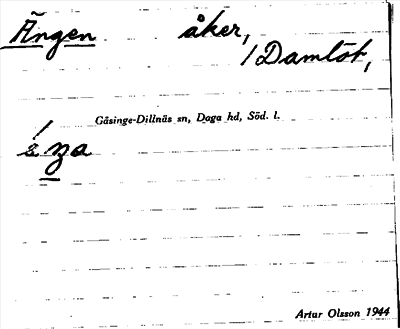 Ängen åker,
/ Damlöt,
Gåsinge-Dillnäs sn, Daga hd, Söd. l.
Artur Olsson 1944